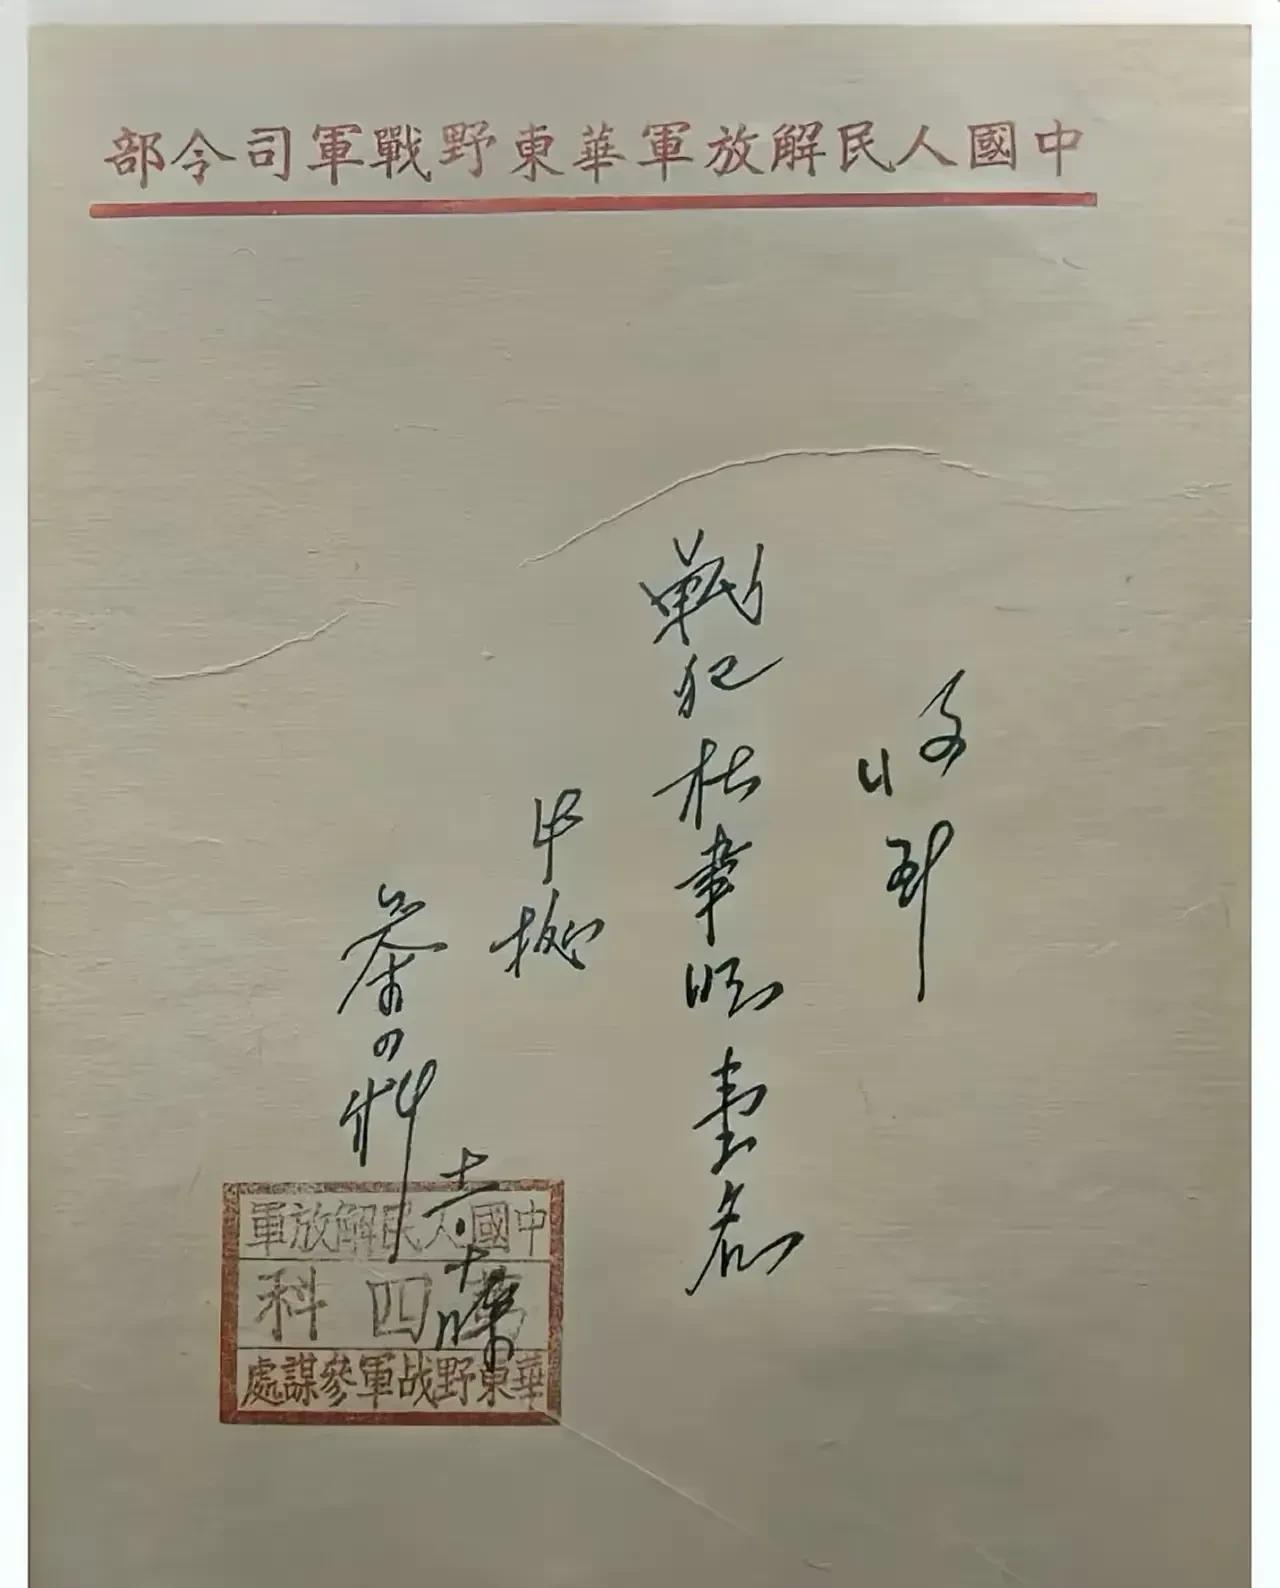 中國人民解放軍華東野戰軍司令部
收到
戰犯杜聿明壹名
此據
參四科
中國人民解放軍
第四科
華東野战軍參謀處